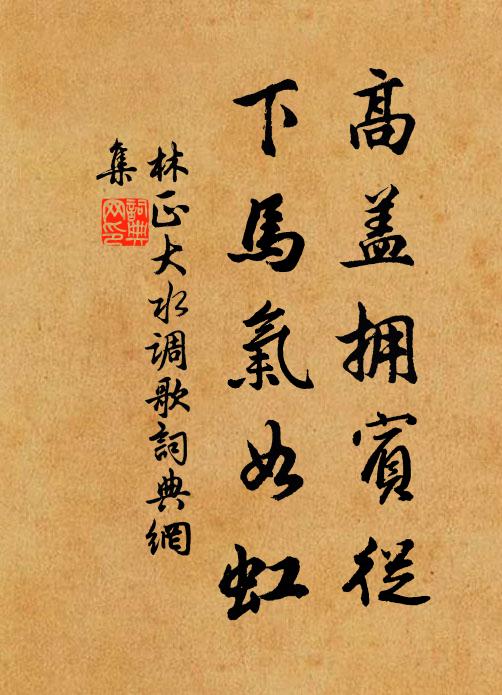 高盖拥賓從
下馬氣如虹
林正大水调歌詞典網
集
詞典網印